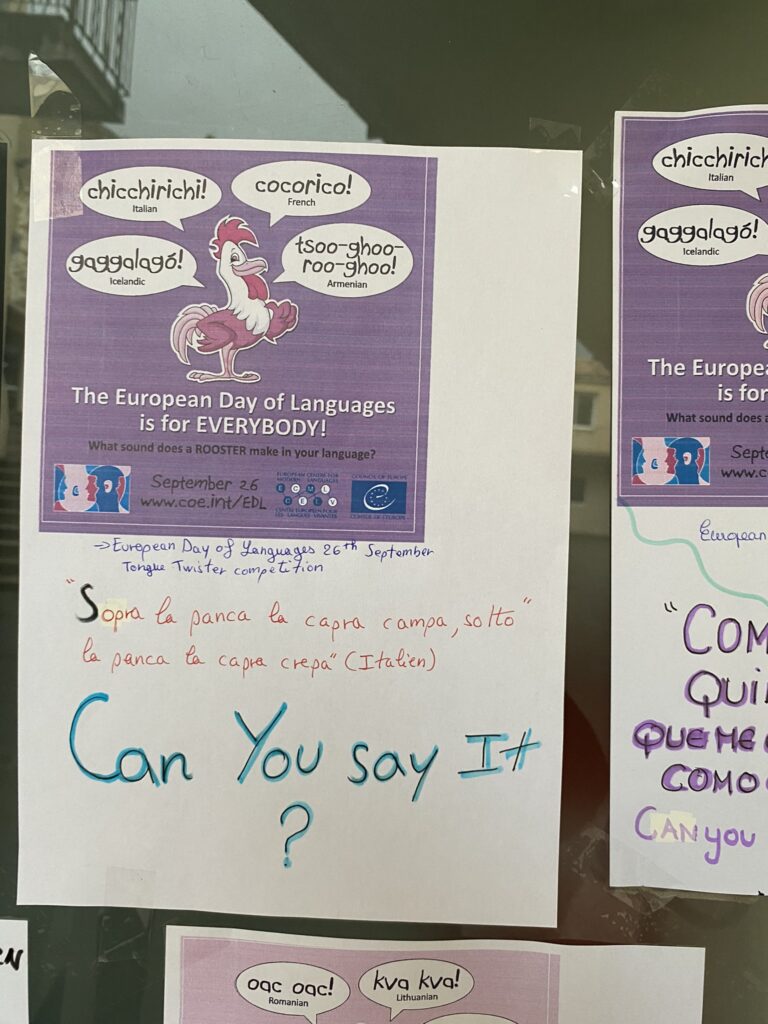 chicchirichi!
Italian
cocorico!
French
gaggalagó!
Icelandic
tsoo-ghoo-
roo-ghoo!
Armenian
The European Day of Languages
is for EVERYBODY!
What sound does a ROOSTER make in your language?
September 26
www.coe.int/EDL
EUROPEAN CENTRE FOR
MODERN LANGUAGES
ECML
CELV
CENTRE EUROPEEN POUR
LES LANGUES VIVANTES
COUNCIL OF EUROPE
CONSEIL DE L'EUROPE
→ European Day of Languages 26th September
Tongue Twister competition
"Sopra la panca la capra campa, sotto"
la panca la capra crepa" (Italien)
Can You say It
?
chicchirich
Italian
gaggalagó!
Icelandic
The Europea
is for
What sound does a
Septe
www.c
European
"COM
QUI
QUE ME
COMO
CAN you
oac oac!
Romanian
kva kva!
Lithuanian